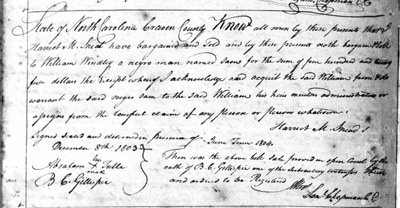 Saml Chapman CC
State of North Carolina Craven County Know all men by these presents that I
Harriet M. Snead have bargained and Sold and by these present doth bargain & Sell
to William Windly a negro man named Sam for the Sum of four hundred and twenty
five dollars the receipt whereof I acknowledge and acquit the said William from & do
warrant the said negro Sam to the said William his heirs executors administrators or
assigns from the lawful claim of any person or persons whatsoever
Harriet M. Snead
Signed Sealed and delivered in Presence of
December 8th 1803
Absalom his X mark Tuttle
B. C. Gillispie
June Term 1804
Then was the above bill Sale proved in open Court by the
oath of B. C. Gillispie one of the subscribing witnesses
and ordered to be Registered
Attest
Saml Chapman CC